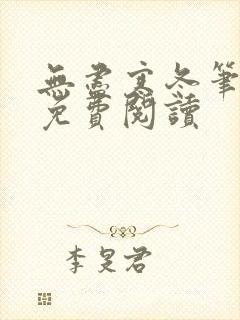 無盡寒冬筆
免費閱讀
李旻君